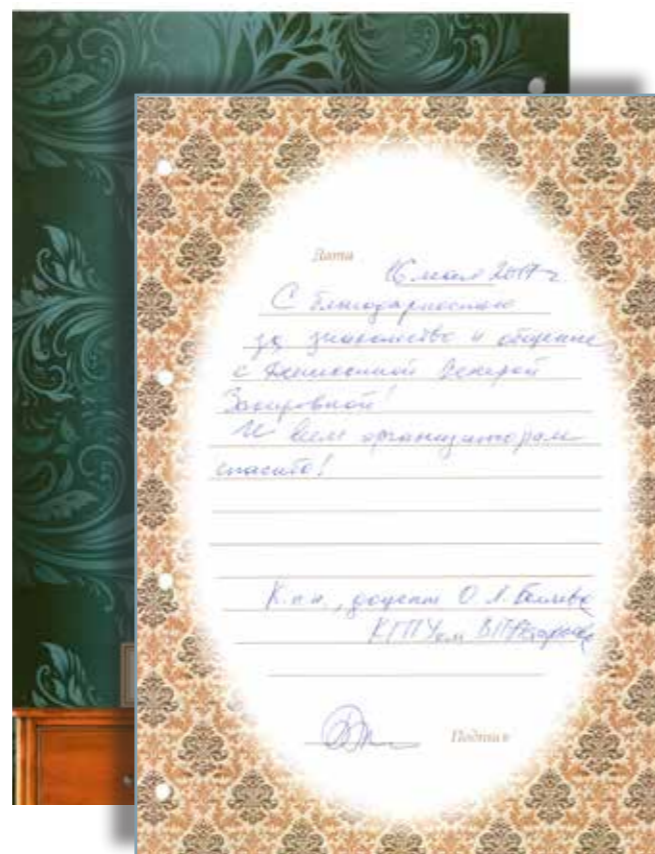 Дата
16 мая 2017 г
С благодарностью
за знакомство и общение
с Венерой
Закировной!
И всем организаторам
спасибо!
К.п.н., доцент О. А.
КГПУ им В.П. Астафьева
Подпись